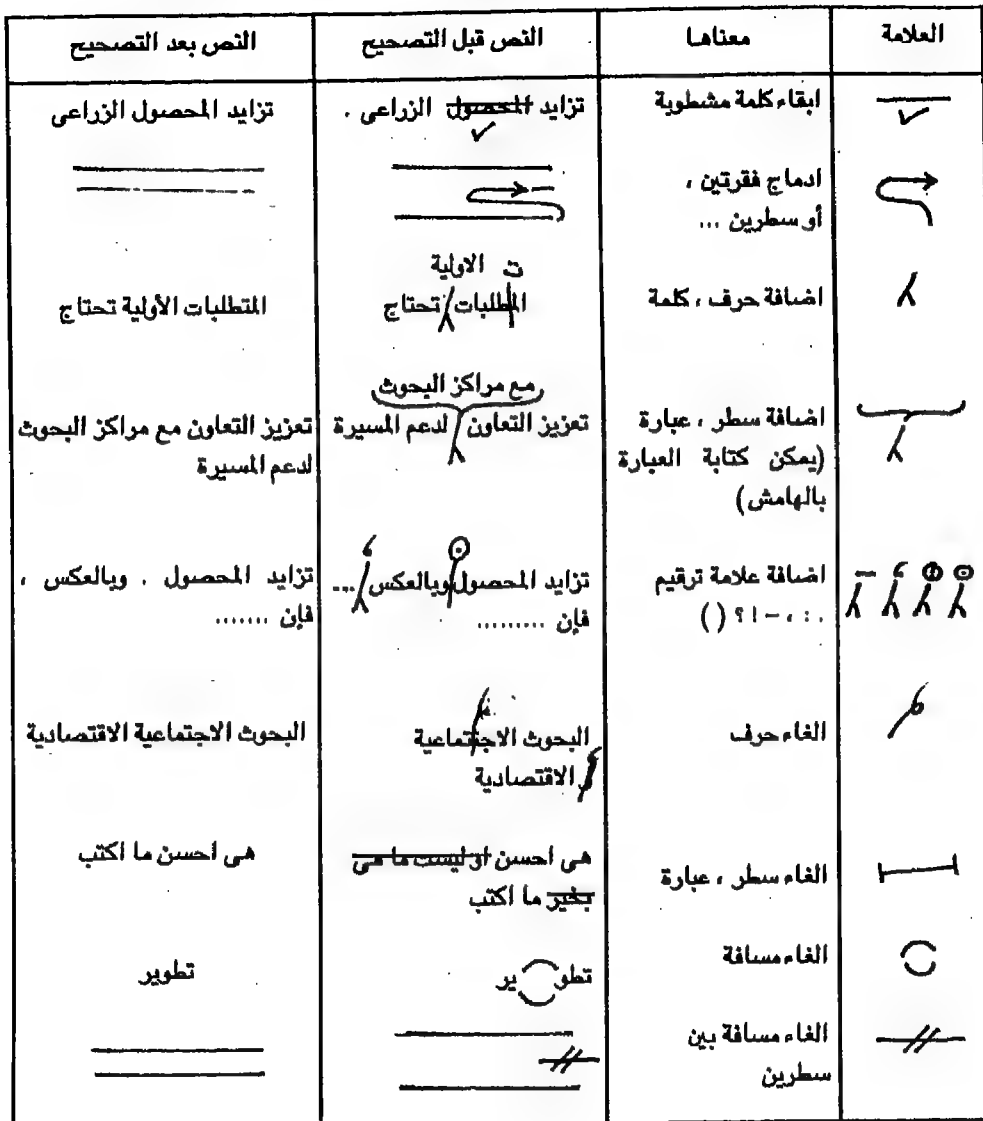 العلامة	معناها	النص قبل التصحيح	النص بعد التصحيح
ابقاء كلمة مشطوبة	تزايد المحصول الزراعى .	تزايد المحصول الزراعى
ادماج فقرتين ،
أو سطرين ...
اضافة حرف ، كلمة	ت الاولية
المطلبات تحتاج	المتطلبات الأولية تحتاج
اضافة سطر ، عبارة
(يمكن كتابة العبارة
بالهامش)	مع مراكز البحوث
تعزيز التعاون لدعم المسيرة	تعزيز التعاون مع مراكز البحوث
لدعم المسيرة
اضافة علامة ترقيم
. : ، – ! ؟ ( )	تزايد المحصول وبالعكس ...
فإن .........	تزايد المحصول . وبالعكس ،
فإن .......
الغاء حرف	البحوث الاجتماعية
و الاقتصادية	البحوث الاجتماعية الاقتصادية
الغاء سطر ، عبارة	هى احسن او ليست ما هى
بخير ما اكتب	هى احسن ما اكتب
الغاء مسافة	تطو ير	تطوير
الغاء مسافة بين
سطرين